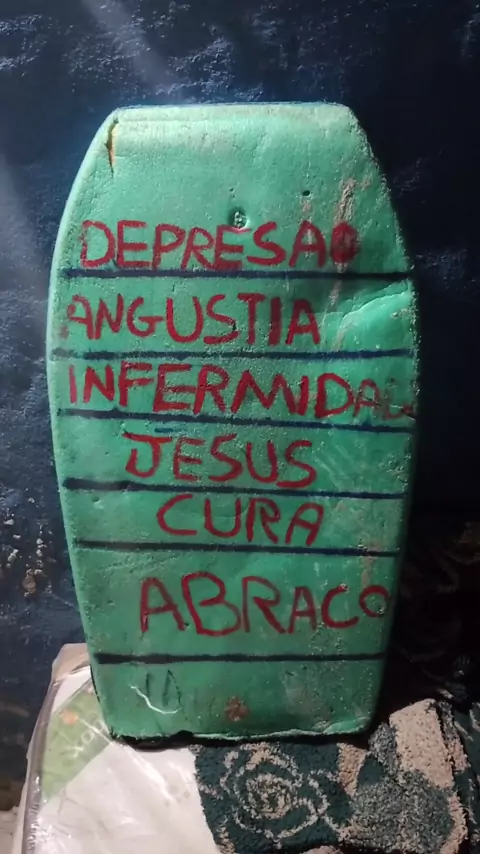 DEPRESAO
ANGUSTIA
INFERMIDADE
JESUS
CURA
ABRACO